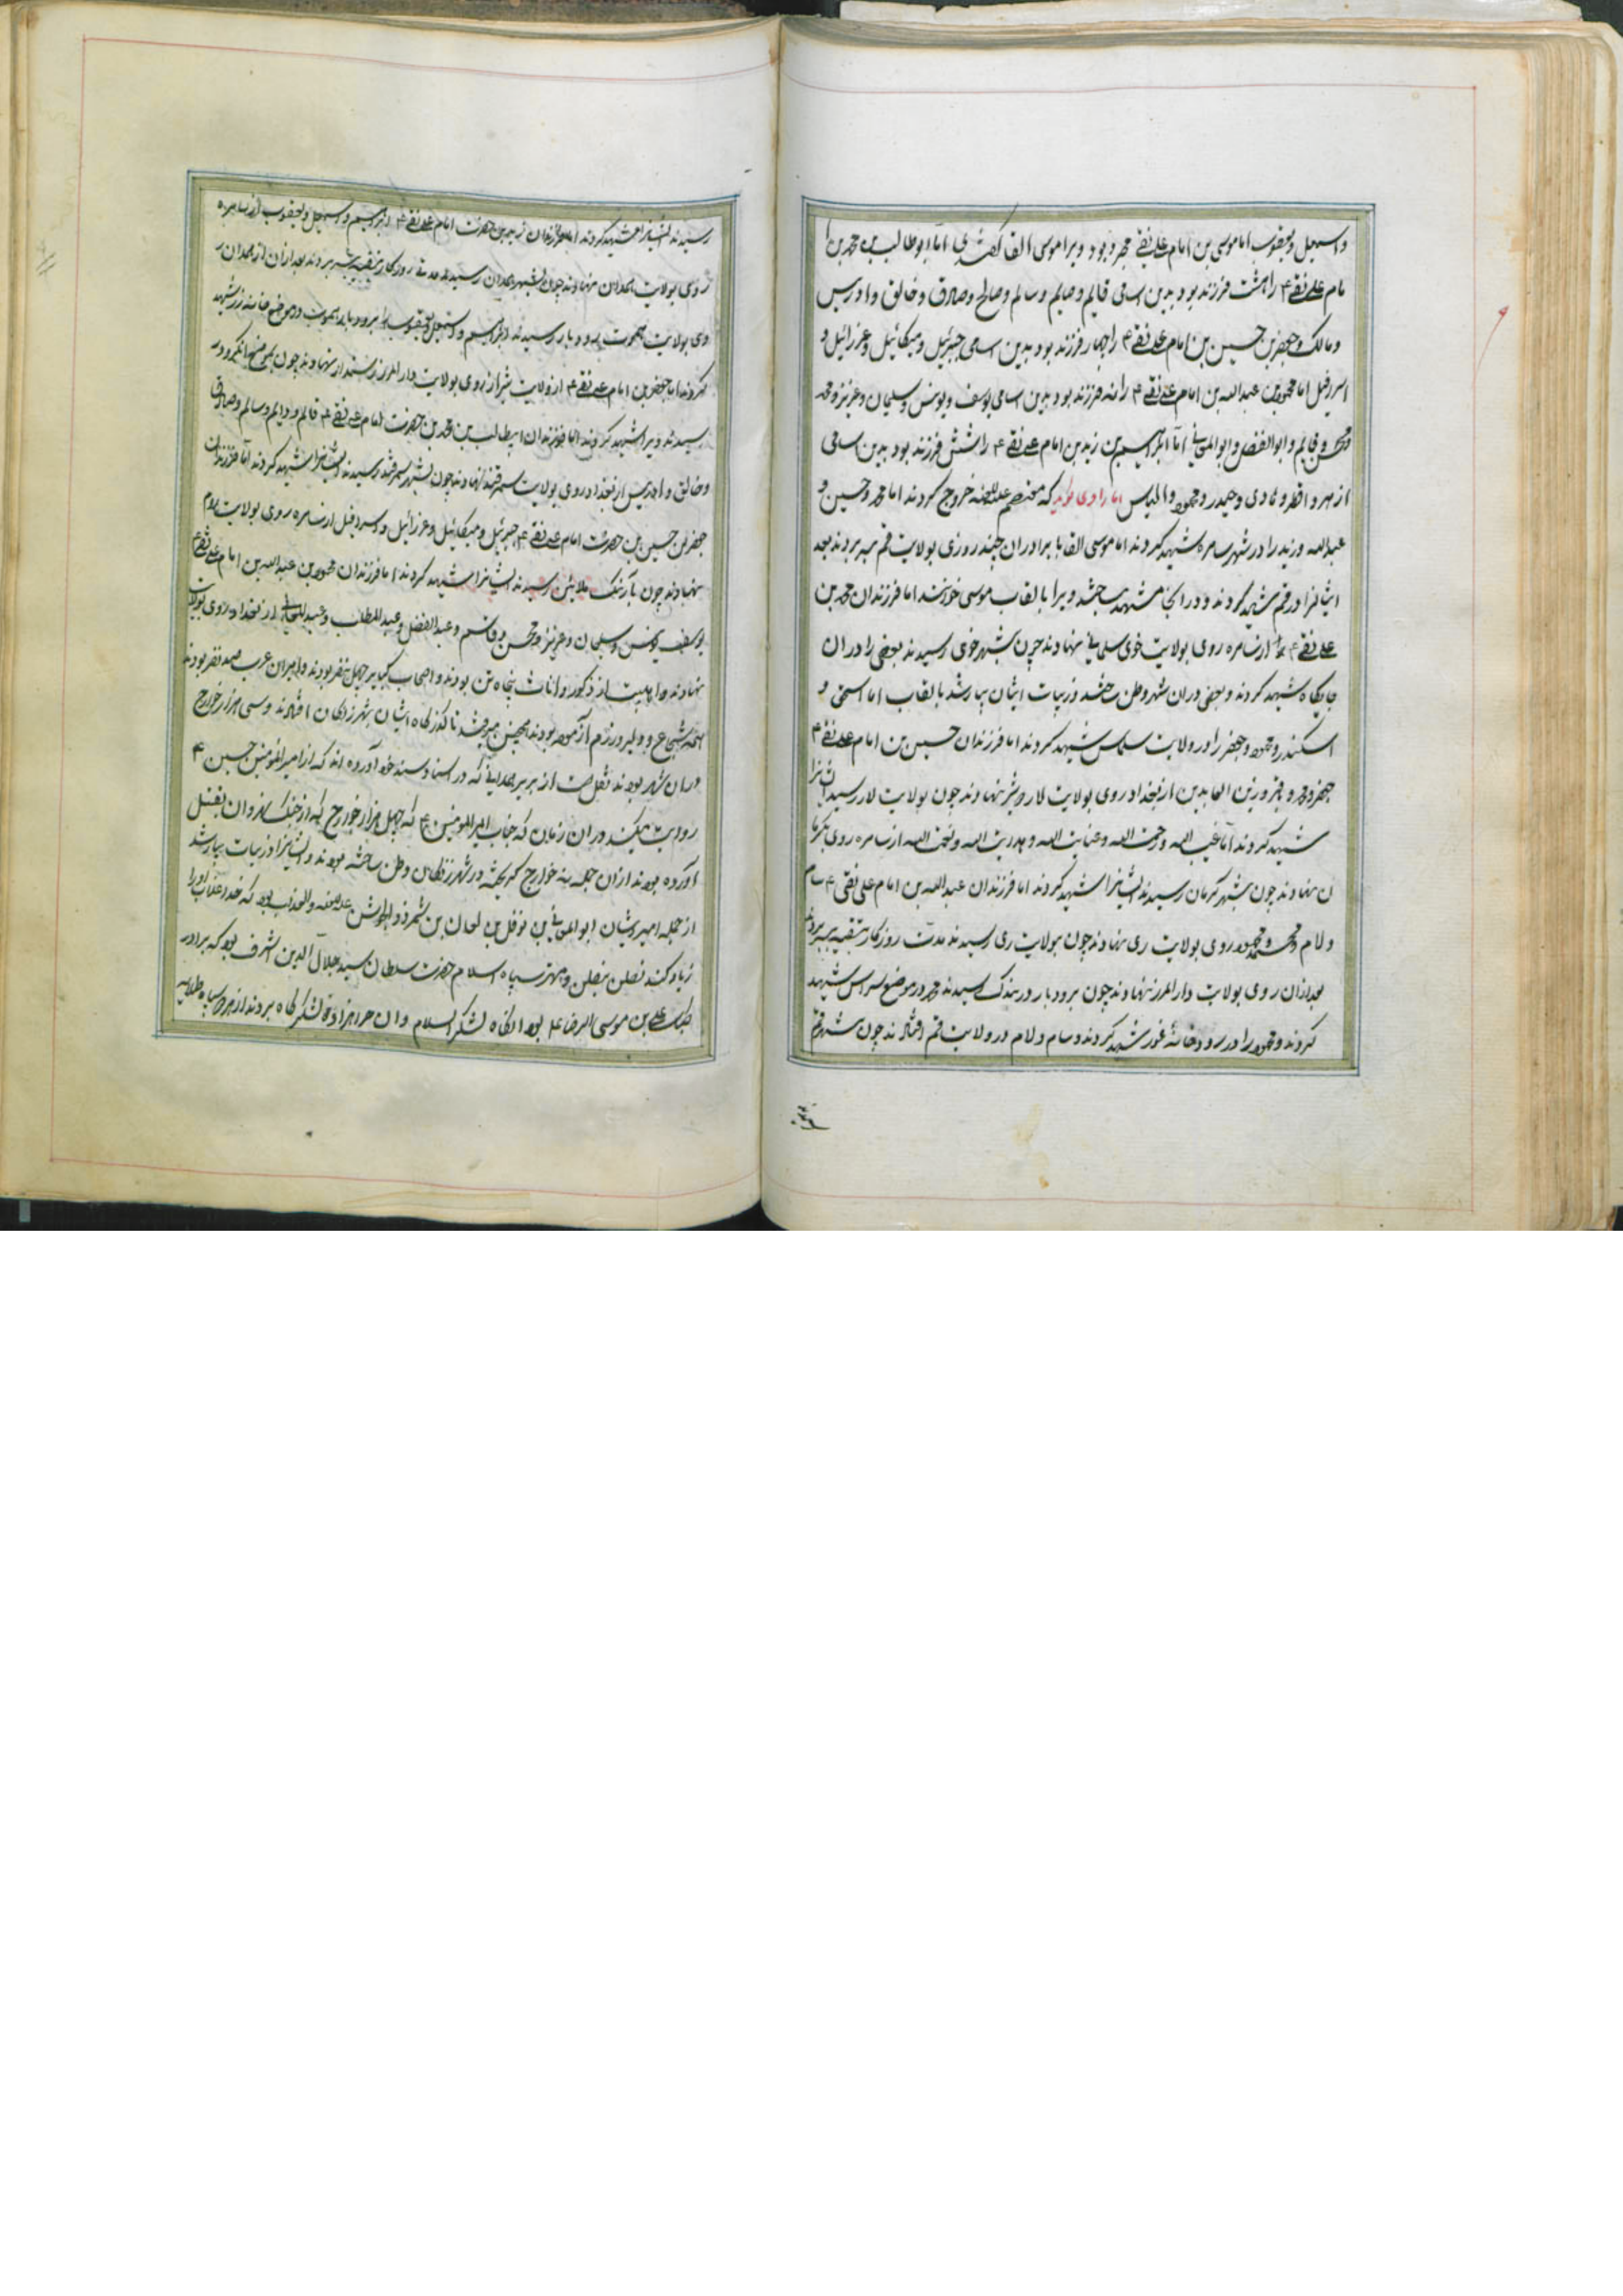 و اسمعیل و یعقوب اما موسی بن امام علی نقی مجرد بود ویرا موسی القا گفتندی اما ابوطالب بن محمد بن
امام علی نقی ۴ را هشت فرزند بود بدین اسامی قایم و صایم و سالم و صالح و صادق و خالق و ادریس
و مالک و جعفر بن حسین بن امام علی نقی ۴ را چهار فرزند بود بدین اسامی جبرئیل و میکائیل و عزرائیل و
اسرفیل اما محمود بن عبدالله بن امام علی نقی ۴ را نه فرزند بود بدین اسامی یوسف و یونس و سلیمان و عزیز و محمد
و محسن و قایم و ابوالفضل و ابوالمعانی اما ابراهیم بن زید بن امام علی نقی ۴ را شش فرزند بود بدین اسامی
ازهر و اطهر و هادی و حیدر و محمود و الیاس اما راوی گوید که معتصم علیه اللعنه خروج کردند اما محمد و حسین و
عبدالله و زید را در شهر سامره شهید کردند اما موسی القا با برادران چند روزی بولایت قم بسر بردند بعد
ایشانرا در قم شهید کردند و در انجا مشهد ساختند ویرا بالقاب موسی خوانند اما فرزندان محمد بن
علی نقی ۴ از سامره روی بولایت خوی سلماس نهادند چون بشهر خوی رسیدند بعضی را در ان
جایگاه شهید کردند و بعضی در ان شهر وطن ساختند و زیات ایشان بسیار شد بالقاب اما اسحق و
اسکندر و محمود و جعفر را در ولایت سلماس شهید کردند اما فرزندان حسین بن امام علی نقی ۴
جعفر و محمد و باقر و زین العابدین از بغداد روی بولایت لار و شیراز نهادند چون بولایت لار رسیدند ایشانرا
شهید کردند اما غیب الله و رحمت الله و عنایت الله و هدایت الله و نعمت الله از سامره روی بکرما
ن نهادند چون بشهر کرمان رسیدند ایشانرا شهید کردند اما فرزندان عبدالله بن امام علی نقی ۴ سام
و لام و محمد و محمود روی بولایت ری نهادند چون بولایت ری رسیدند مدت روزگار بتقیه بسر بردند
بعد ازان روی بولایت دار المرز نهادند چون برودبار رسیدند محمد در موضع سراس شهید
کردند و محمود را در رودخانه غور شهید کردند و سام و لام در ولایت قم افتادند چون بشهر قم
رسیدند ایشانرا شهید کردند اما فرزندان زید بن حضرت امام علی نقی ۴ ابراهیم و اسمعیل و یعقوب از سامره
روی بولایت همدان نهادند چون بشهر همدان رسیدند مدتی روزگار بتقیه بسر بردند بعد ازان از همدان
روی بولایت رودبار رسیدند ابراهیم و اسمعیل و یعقوب را برودبار در موضع خانه زر شهید
کردند اما جعفر بن امام علی نقی ۴ از ولایت شیراز روی بولایت دار المرز رستمدار نهادند چون بموضع
رسیدند ویرا شهید کردند اما فرزندان ابیطالب بن محمد بن حضرت امام علی نقی ۴ قایم و دایم و سالم و صادق
و خالق و ادریس از بغداد روی بولایت سمرقند نهادند چون بشهر سمرقند رسیدند ایشانرا شهید کردند اما فرزندان
جعفر بن حسین بن حضرت امام علی نقی ۴ جبرئیل و میکائیل و عزرائیل و اسرافیل از سامره روی بولایت
نهادند چون رسیدند ایشانرا شهید کردند اما فرزندان محمود بن عبدالله بن امام علی نقی ۴
یوسف یونس و سلیمان و عزیز و محمد و محسن و قاسم و عبدالفضل و عبدالمطلب و از بغداد روی بولایت
نهادند و اهلبیت از ذکور و اناث پنجاه تن بودند و اصحاب کبایر چهل نفر بودند و امیران عرب صد نفر بودند
همه شجاع و دلیر و رزم آزموده بودند همچنین میرفتند تا گذرگاه ایشان بشهر افتادند و سی هزار خوارج
دران شهر بودند نقل است از بریر همدانی که در اسناد و سند خود آورده اند که از امیرالمؤمنین حسین ۴
روایت میکند دران زمان که جناب امیرالمؤمنین ۴ که چهل هزار خوارج که از جنگ نهروان بقتل
آورده بودند ازان جمله سه خوارج گریخته در شهر وطن ساخته بودند و ایشانرا زیات بسیار شد
از جمله امیر ایشان ابوالمعانی بن نوفل بن بن شمر ذوالجوشن علیه اللعنه والعذاب بود که خدا عذاب او را
زیاد کند و مهتر سپاه اسلام حضرت سلطان سید جلال الدین اشرف بود که برادر
علی بن موسی الرضا ۴ بود آنگاه لشکر اسلام و ان حرامزاده لشکرگاه بردند از هر دو سپاه طلایه